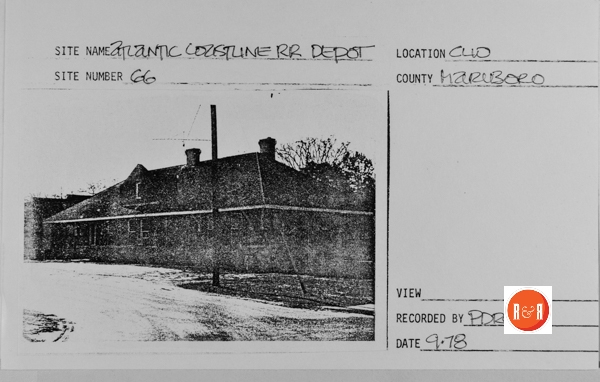 SITE NAME ATLANTIC COASTLINE RR DEPOT
SITE NUMBER 66
LOCATION CLIO
COUNTY MARLBORO
VIEW
RECORDED BY PDR
R&R
DATE 9.78